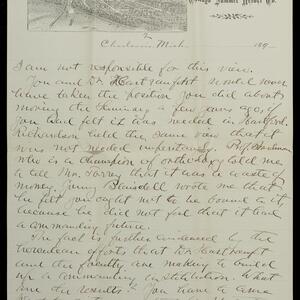 Chicago Summer Resort Co.
Charlevoix, Mich. 189
I am not responsible for this view.
You and Dr. Hartranft would never
have taken the position you did about
moving the Seminary a few years ago, if
you had felt it was needed in Hartford.
Richardson held the same view that it
was not needed imperatively. Prof.
who is a champion of orthodoxy told me
to tell Mr. that it was a waste of
money. Jenny Blaisdell wrote me that
he felt ought not to be bound to it
because he did not feel that it had
a commanding future.
This fact is further evidenced by the
efforts that Dr. Hartranft
and the faculty are making to build
up a commanding institution. What
are the results? You have a